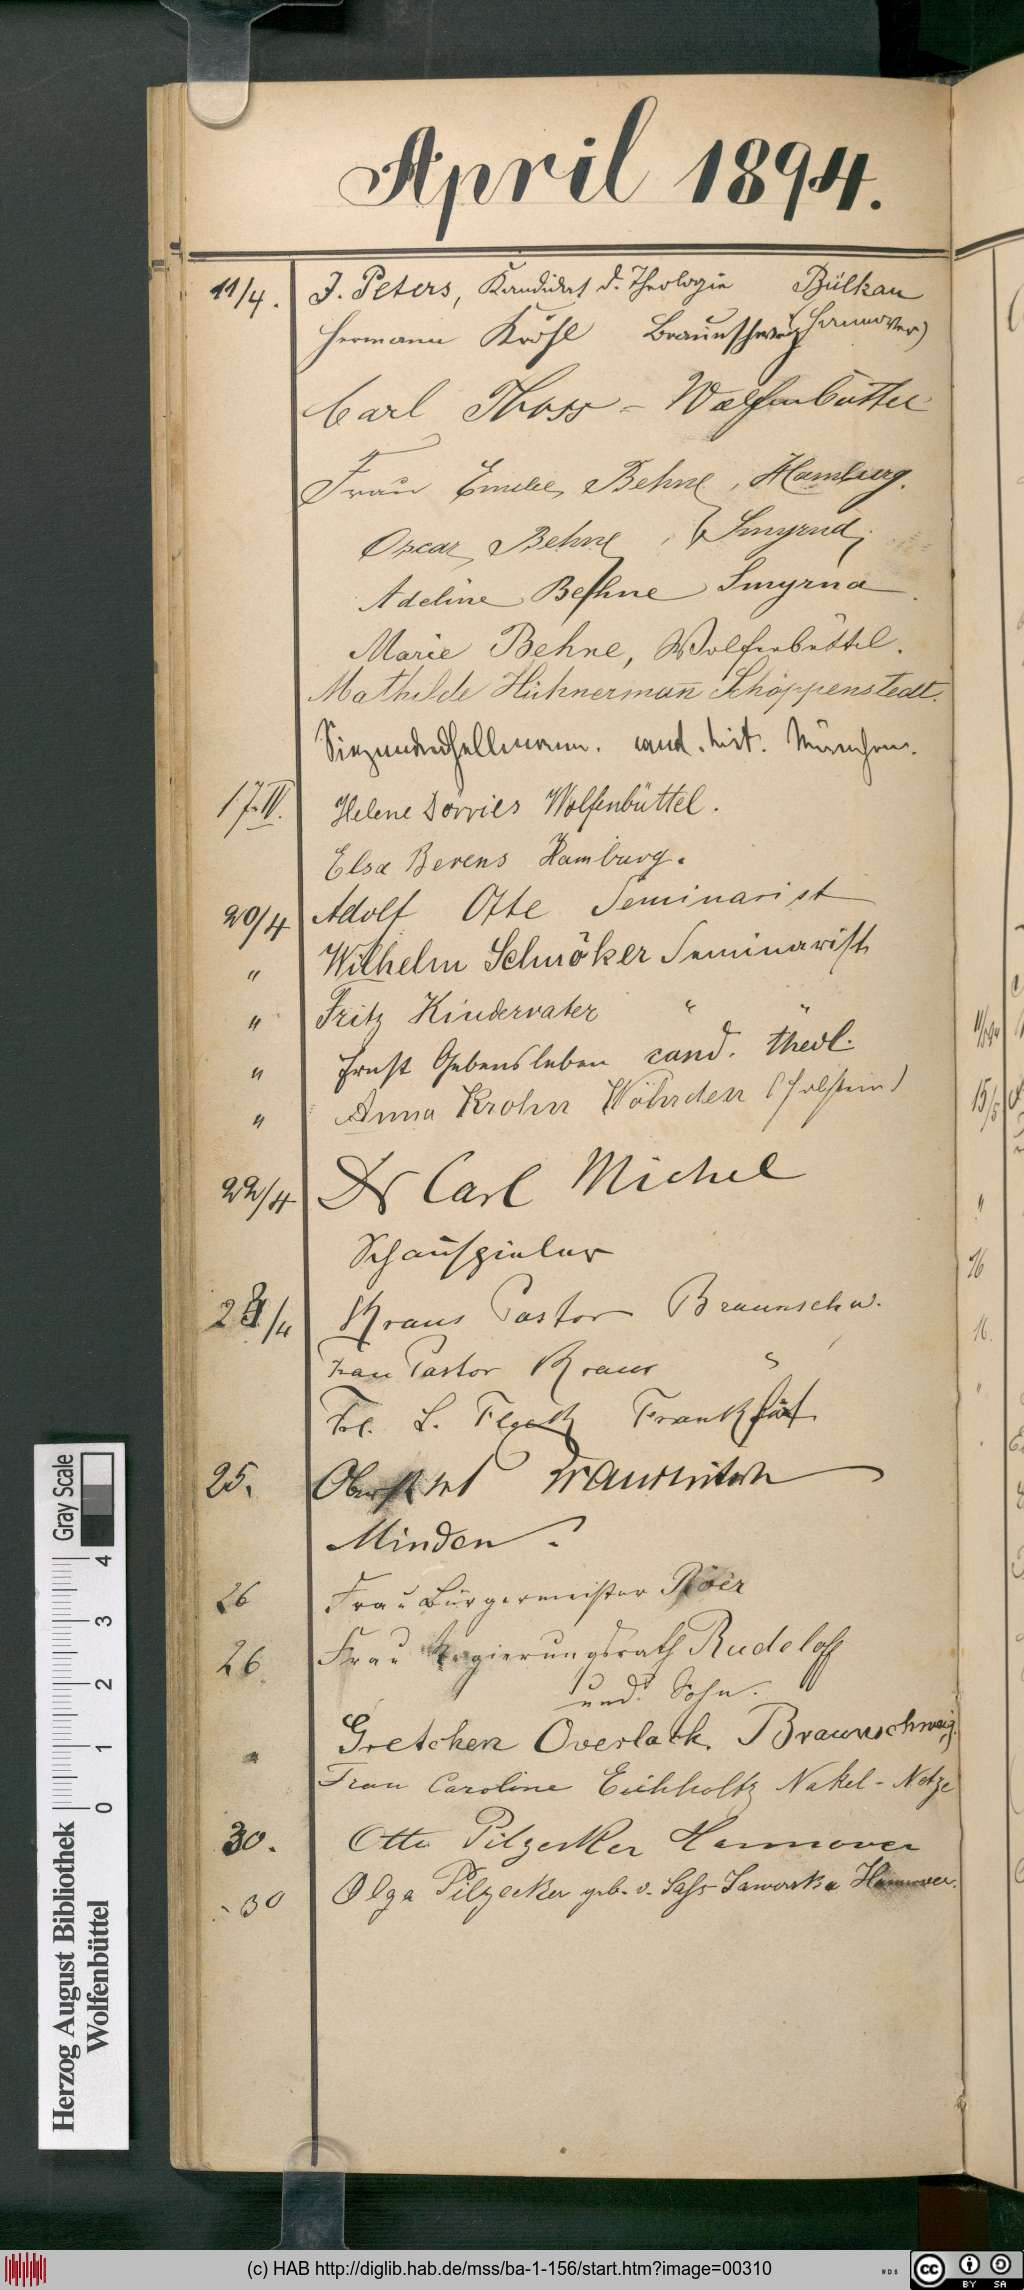 April 1894.
11/4. J. Peters, Kandidat d. Theologie Bülkau
(Hannover)
Hermann Kröhl Braunschweig
Carl Thoss - Wolfenbüttel
Frau Emilie Behne, Hamburg.
Oscar Behne, Smyrna,
Adeline Behne Smyrna
Marie Behne, Wolfenbüttel.
Mathilde Hühnermann Schöppenstedt.
Hellmann. cand. hist. München.
17.IV. Helene Dörries Wolfenbüttel.
Elsa Berens Hamburg.
20/4 Adolf Otte Seminarist
" Wilhelm Schmöker Seminarist
" Fritz Kindervater " "
" Ernst Gebensleben cand. theol.
" Anna Krohn Wöhrden (Holstein)
22/4 Dr Carl Michel
Schauspieler
24/4 Kraus Pastor Braunschw.
Frau Pastor Kraus "
Frl. L. Fleck Frankfurt
25.
Minden.
26 Frau Bürgermeister
26. Frau Regierungsrath Rudeloff
und Sohn.
" Gretchen Overlack. Braunschweig.
Frau Caroline Eichholtz Nakel-Netze
30. Otto Pilzecker Hannover
30 Olga Pilzecker geb. v. Sass-Jaworska Hannover.
11/5 94
15/5
"
16
16.
"
Gray Scale
4 3 2 1 0
Herzog August Bibliothek
Wolfenbüttel
(c) HAB http://diglib.hab.de/mss/ba-1-156/start.htm?image=00310
cc BY SA